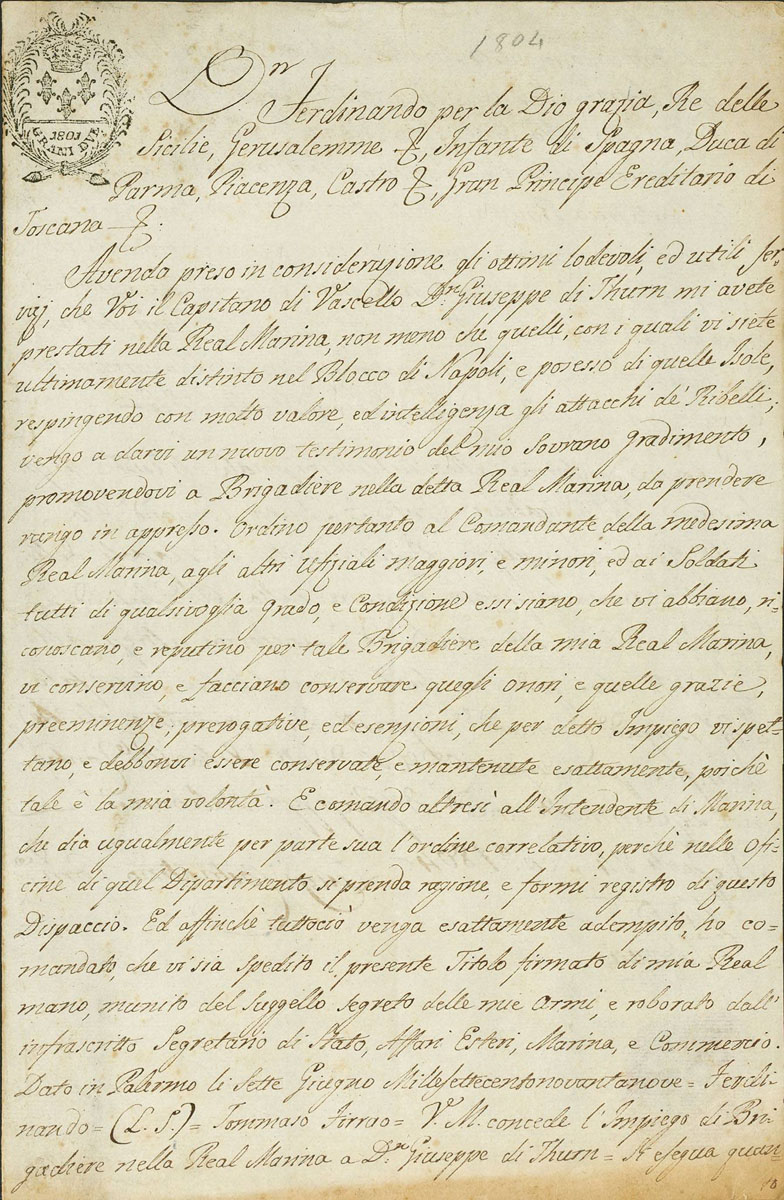 1804
1801
GRANI DVE
Dn Ferdinando per la Dio grazia, Re delle
Sicilie, Gerusalemme &, Infante di Spagna, Duca di
Parma, Piacenza, Castro &, Gran Principe Ereditario di
Toscana &.
Avendo preso in considerazione gli ottimi lodevoli, ed utili ser-
vizj, che Voi il Capitano di Vascello Dn Giuseppe di Thurn mi avete
prestati nella Real Marina, non meno che quelli, con i quali vi siete
ultimamente distinto nel Blocco di Napoli, e posesso di quelle Isole,
respingendo con molto valore, ed intelligenza gli attacchi de' Ribelli;
vengo a darvi un nuovo testimonio del mio Sovrano gradimento,
promovendovi a Brigadiere nella detta Real Marina, da prendere
rango in appresso. Ordino pertanto al Comandante della medesima
Real Marina, agli altri Ufiziali maggiori, e minori, ed ai Soldati
tutti di qualsivoglia grado, e Condizione essi siano, che vi abbiano, ri-
conoscano, e reputino per tale Brigadiere della mia Real Marina,
vi conservino, e facciano conservare quegli onori, e quelle grazie,
preeminenze, prerogative, ed esenzioni, che per detto Impiego vi spet-
tano, e debbonvi essere conservate, e mantenute esattamente, poichè
tale è la mia volontà. E comando altresì all'Intendente di Marina,
che dia ugualmente per parte sua l'ordine correlativo, perchè nelle Ofi-
cine di quel Dipartimento si prenda ragione, e formi registro di questo
Dispaccio. Ed affinchè tuttociò venga esattamente adempito, ho co-
mandato, che vi sia spedito il presente Titolo firmato di mia Real
mano, munito del suggello segreto delle mie Armi, e roborato dall'
infrascritto Segretario di Stato, Affari Esteri, Marina, e Commercio.
Dato in Palermo li sette Giugno Millesettecentonovantanove = Ferdi-
nando = (L. S.) = Tommaso Firrao = V. M. concede l'Impiego di Bri-
gadiere nella Real Marina a Dn Giuseppe di Thurn = Si esegua quan-
to